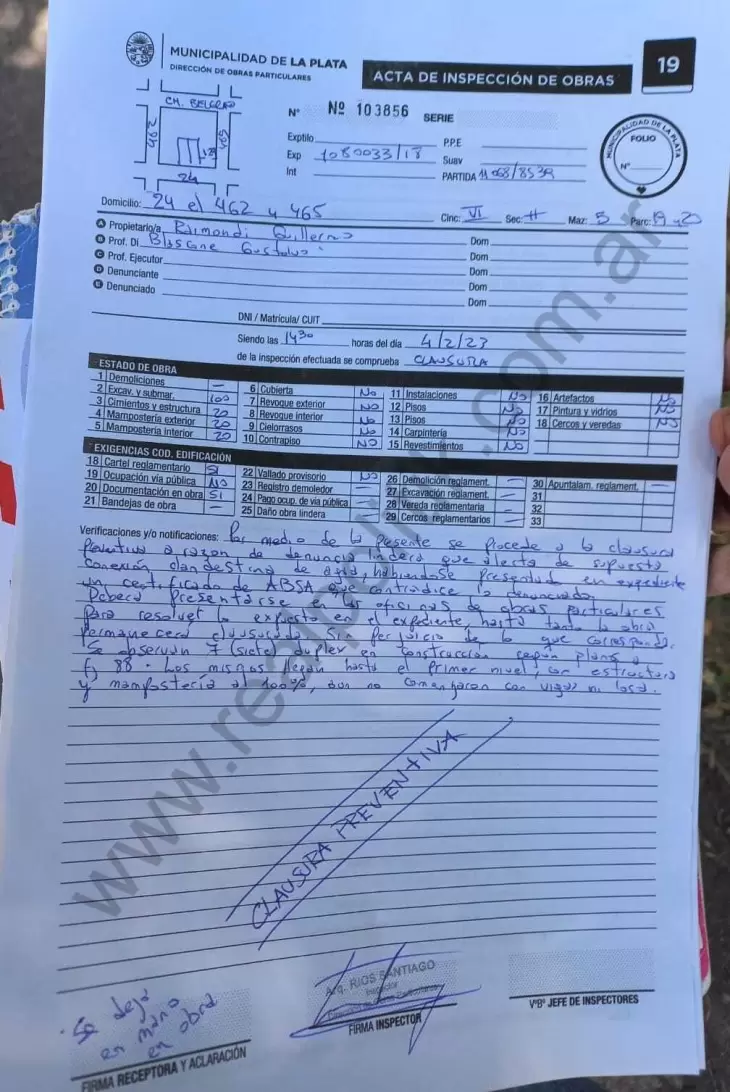 MUNICIPALIDAD DE LA PLATA
DIRECCIÓN DE OBRAS PARTICULARES
ACTA DE INSPECCIÓN DE OBRAS
19
Nº Nº 103856 SERIE
CM. BELGRANO
462
465
24
Exptilo
Exp 1080033/18
Int
P.P.E
Suav
PARTIDA 11068/8539
MUNICIPALIDAD DE LA PLATA
FOLIO
Nº
Domicilio: 24 e/ 462 y 465 Cinc: VI Sec: H Maz: 5 Parc: 19 y 20
A Propietario/a Raimondi Guillermo Dom
B Prof. Di Blascone Gustavo. Dom
C Prof. Ejecutor Dom
D Denunciante Dom
E Denunciado Dom
DNI / Matrícula/ CUIT
Siendo las 14:30 horas del día 4/2/23
de la inspección efectuada se comprueba CLAUSURA
ESTADO DE OBRA
1 Demoliciones —
2 Excav. y submar. 100
3 Cimientos y estructura 20
4 Mampostería exterior 20
5 Mampostería interior 20
6 Cubierta No
7 Revoque exterior No
8 Revoque interior No
9 Cielorrasos No
10 Contrapiso No
11 Instalaciones No
12 Pisos No
13 Pisos No
14 Carpintería No
15 Revestimientos No
16 Artefactos No
17 Pintura y vidrios No
18 Cercos y veredas No
EXIGENCIAS COD. EDIFICACIÓN
18 Cartel reglamentario SI
19 Ocupación vía pública NO
20 Documentación en obra SI
21 Bandejas de obra —
22 Vallado provisorio No
23 Registro demoledor —
24 Pago ocup. de vía pública —
25 Daño obra lindera —
26 Demolición reglament. —
27 Excavación reglament. —
28 Vereda reglamentaria —
29 Cercos reglamentarios —
30 Apuntalam. reglament. —
31
32
33
Verificaciones y/o notificaciones: Por medio de la presente se procede a la clausura
preventiva a razon de denuncia lindera que alerta de supuesta
conexión clandestina de agua, habiendose presentado en expediente
un certificado de ABSA que contradice lo denunciado.
Deberá presentarse en las oficinas de obras particulares
para resolver lo expuesto en el expediente, hasta tanto la obra
permanecerá clausurada. Sin perjuicio de lo que corresponda.
Se observan 7 (siete) duplex en construcción según plano a
fs 88. Los mismos llegan hasta el primer nivel, con estructura
y mampostería al 100%, aun no comenzaron con vigas ni losa.
CLAUSURA PREVENTIVA
www.realpolitik.com.ar
Se deja
en mano
en obra
FIRMA RECEPTORA Y ACLARACIÓN
Arq. RIOS SANTIAGO
Inspector
Dirección de Obras Particulares
FIRMA INSPECTOR
VºBº JEFE DE INSPECTORES